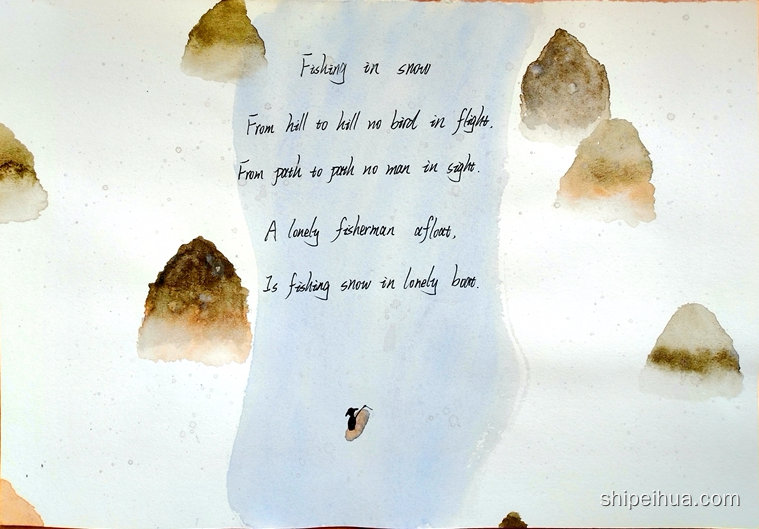 Fishing in snow
From hill to hill no bird in flight.
From path to path no man in sight.
A lonely fisherman afloat,
Is fishing snow in lonely boat.
shipeihua.com